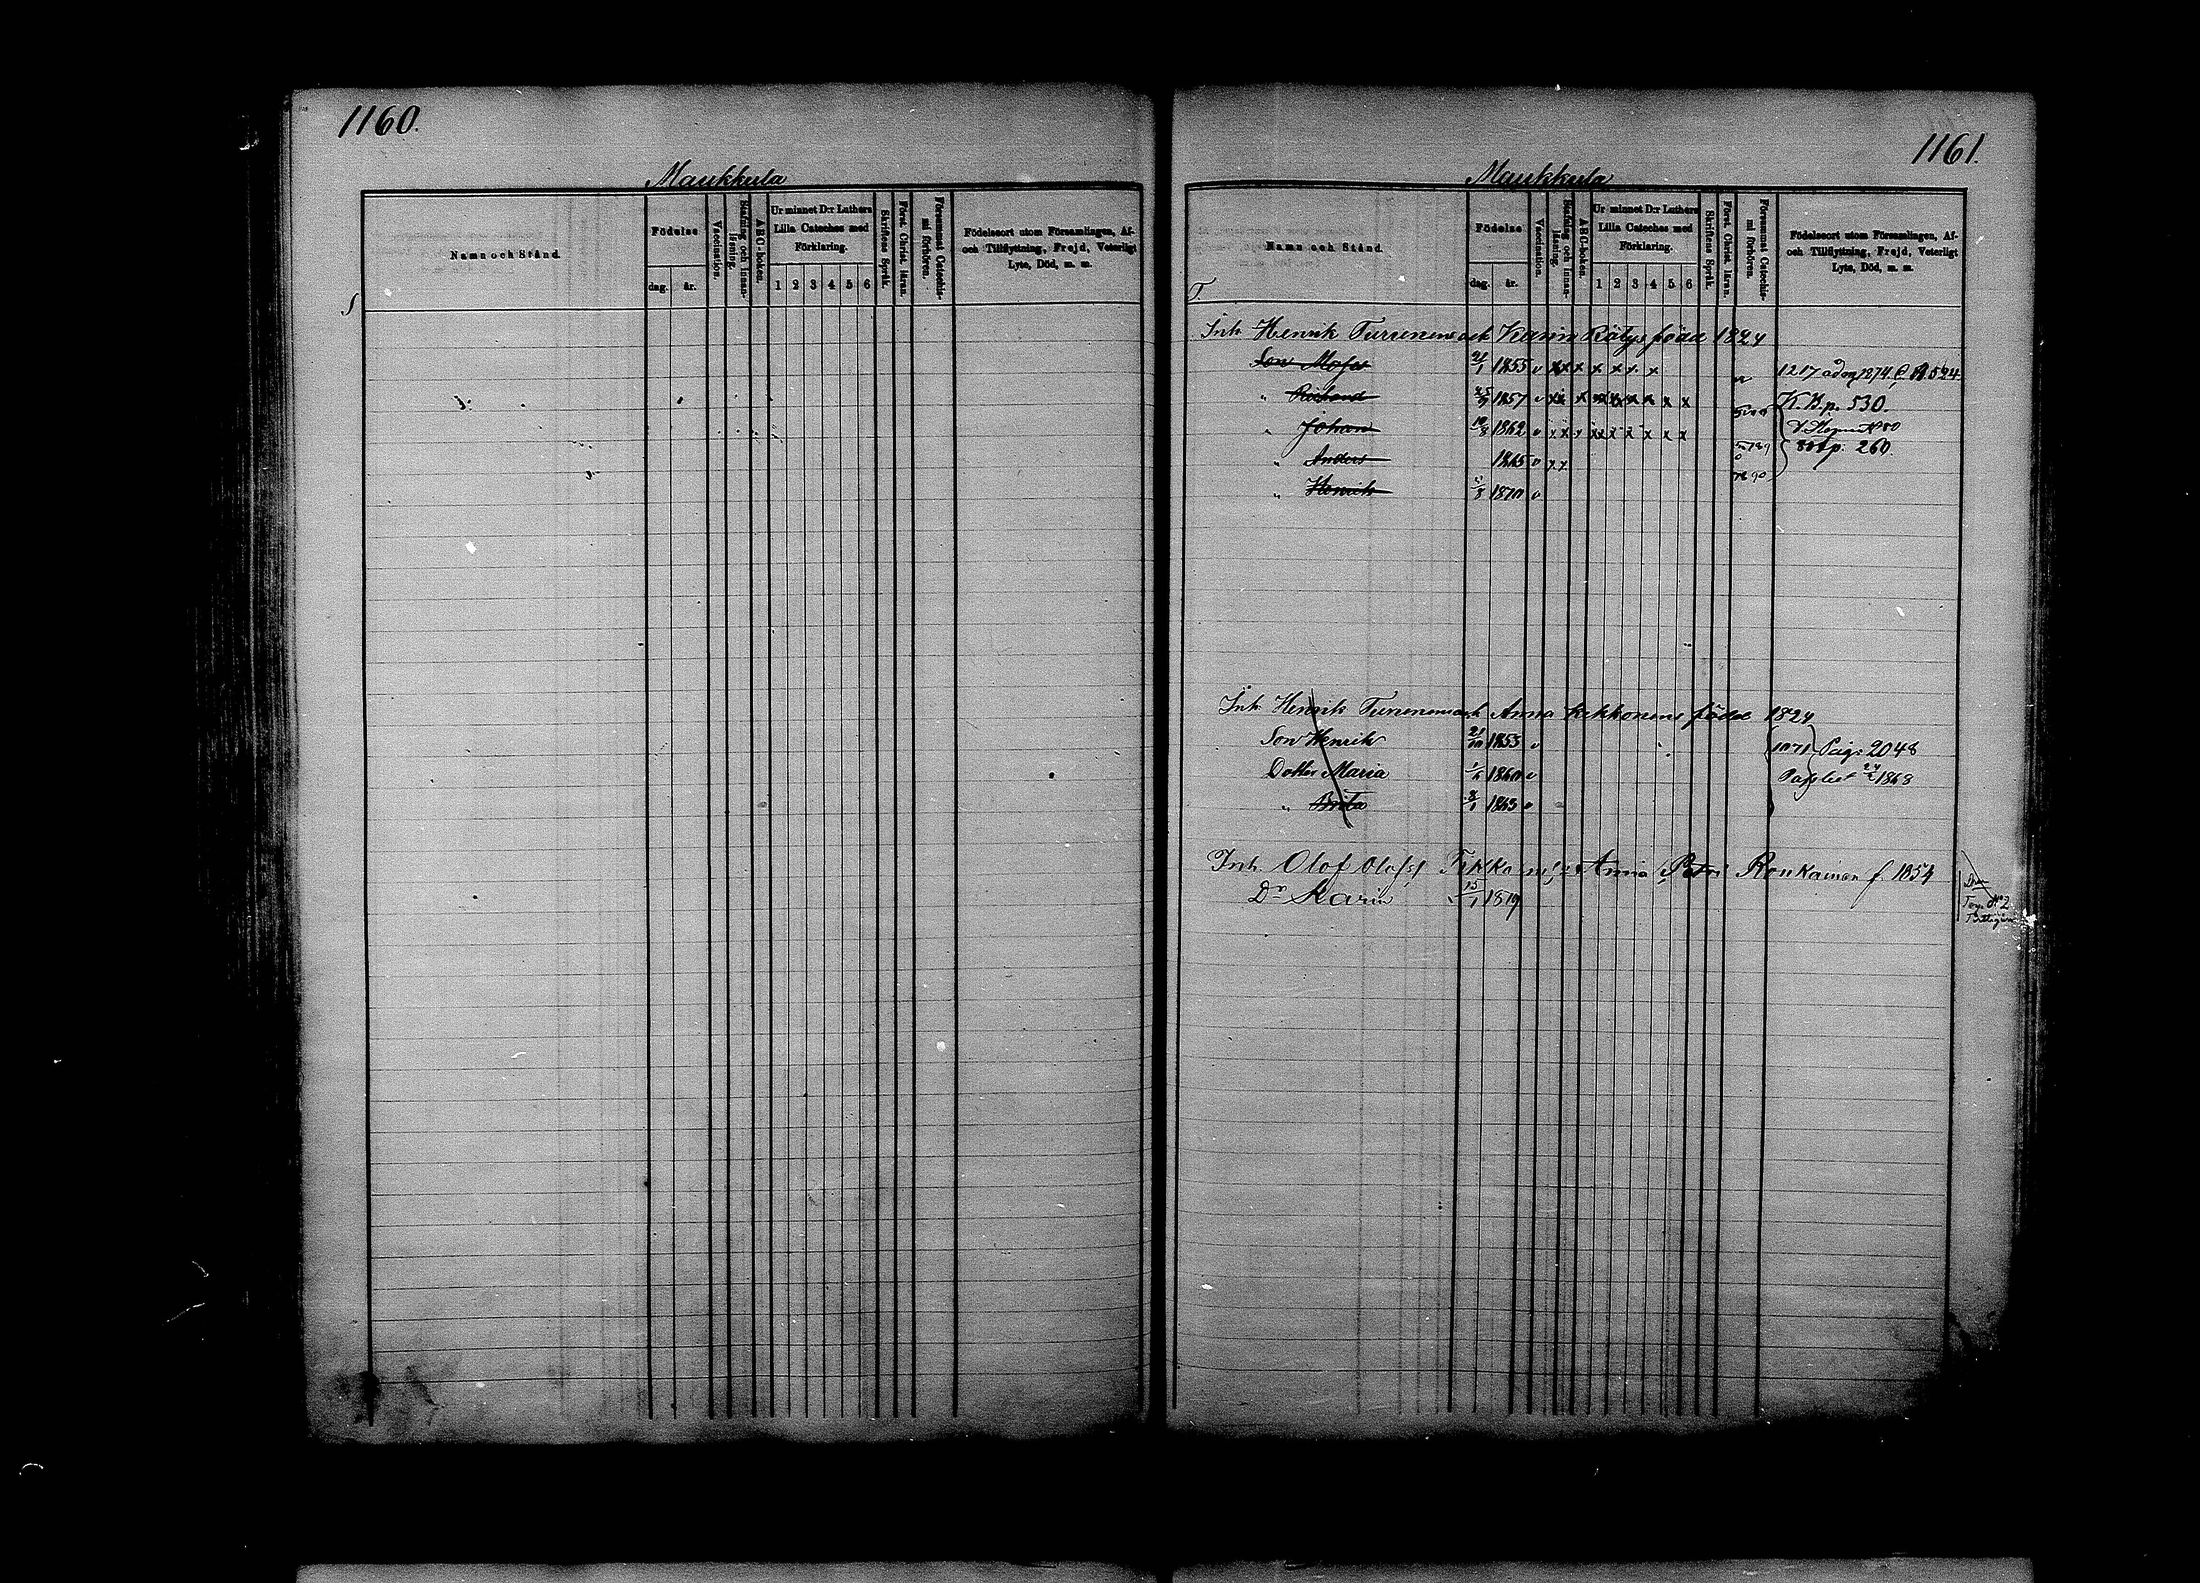 1160.
Maukkula
Namn och Stånd.
Födelse
dag. år.
Vaccination.
Stafning och Innan-läsning.
ABC-boken.
Ur minnet D:r Luthers Lilla Cateches med Förklaring.
1 2 3 4 5 6
Skriftens Språk.
Först. Christ. läran.
Försummat Catechis-mi förhören.
Födelseort utom Församlingen, Af- och Tillflyttning, Frejd, Veterligt Lyte, Död, m. m.
S
1161.
Maukkula
Namn och Stånd.
Födelse
dag. år.
Vaccination.
Stafning och Innan-läsning.
ABC-boken.
Ur minnet D:r Luthers Lilla Cateches med Förklaring.
1 2 3 4 5 6
Skriftens Språk.
Först. Christ. läran.
Försummat Catechis-mi förhören.
Födelseort utom Församlingen, Af- och Tillflyttning, Frejd, Veterligt Lyte, Död, m. m.
T.
Inh Henrik Turunens och Karin Rätys född 1824
Son Moses 21/1 1855 v xx x x x x x 1217 adm 1874 524
" Richard 1857 v xx x x x x x x x K.B.p. 530.
" Johan 1862 v x x x xx x x x x x
" Anders 1865 v xx p. 260.
" Henrik 1870 v
Inh Henrik Turunens och Anna Kekkonens född 1824
Son Henrik 21/10 1853 v 1071 Pag: 2048
Dotter Maria 1860 v 1868
" Brita 8/1 1863 v
Inh. Olof Olofss Anna Petri Ronkainen f. 1854
Dr Karin 15/1 1879
No 2